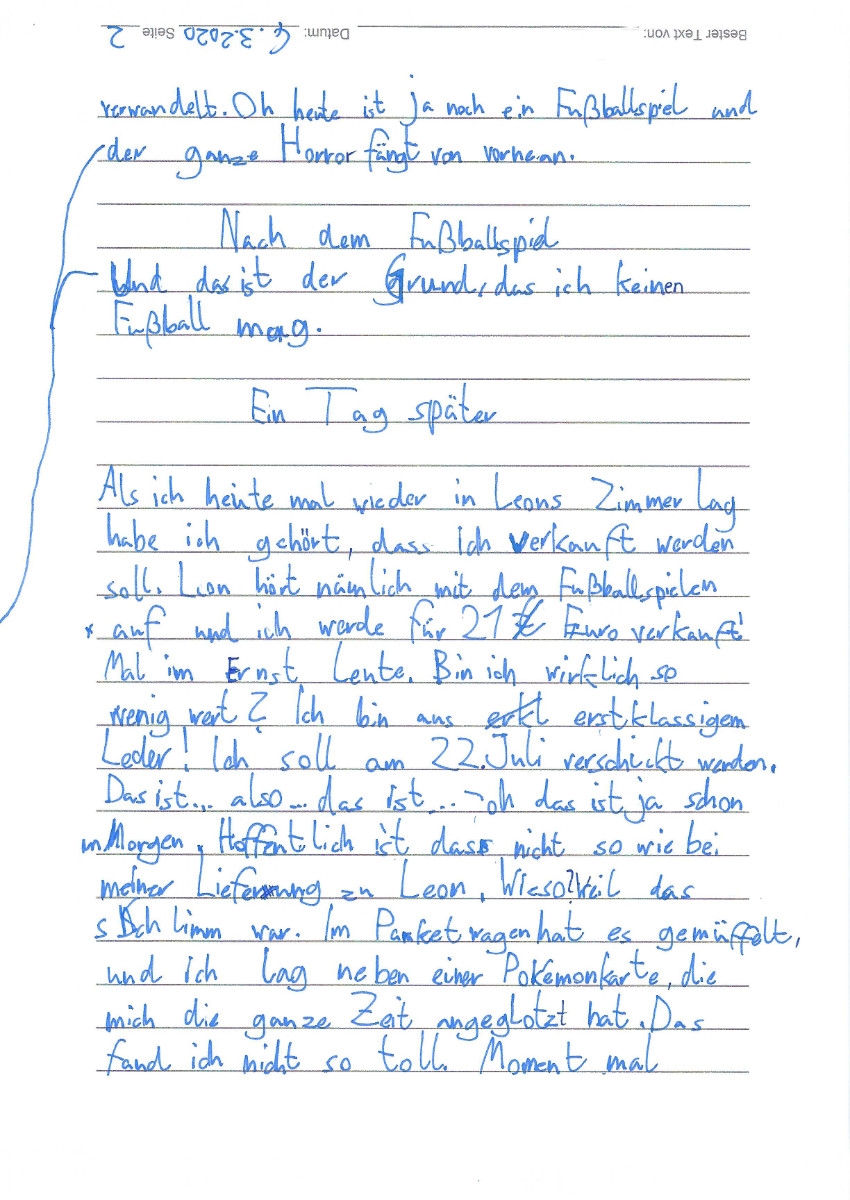 Bester Text von: Datum: 4.3.2020 Seite 2
verwandelt. Oh heute ist ja noch ein Fußballspiel und
der ganze Horror fängt von vorhean.
Nach dem Fußballspiel
Und das ist der Grund, das ich keinen
Fußball mag.
Ein Tag später
Als ich heute mal wieder in Leons Zimmer lag
habe ich gehört, dass ich verkauft werden
soll. Leon hört nämlich mit dem Fußballspielen
* auf und ich werde für 21 Euro verkauft!
Mal im Ernst Leute. Bin ich wirklich so
wenig wert? Ich bin aus erkl erstklassigem
Leder! Ich soll am 22. Juli verschickt werden.
Das ist... also... das ist... oh das ist ja schon
Morgen, Hoffentlich ist das nicht so wie bei
meiner Lieferung zu Leon, Wieso? Weil das
schlimm war. Im Paketwagen hat es gemüffelt,
und ich lag neben einer Pokémonkarte, die
mich die ganze Zeit angeglotzt hat. Das
fand ich nicht so toll. Moment mal